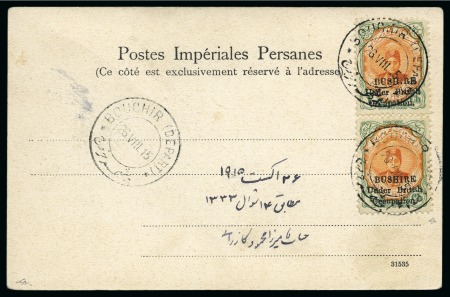 Postes Impériales Persanes
(Ce côté est exclusivement réservé à l'adresse)
BOUCHIR (DEPART)
26 VIII 15
BOUCHIR (DEPART)
26 VIII 15
BUSHIRE
Under British
Occupation.
BUSHIRE
Under British
Occupation.
۲۶ اگست ۱۹۱۵
مطابق ۱۴ شوال ۱۳۳۳
31535